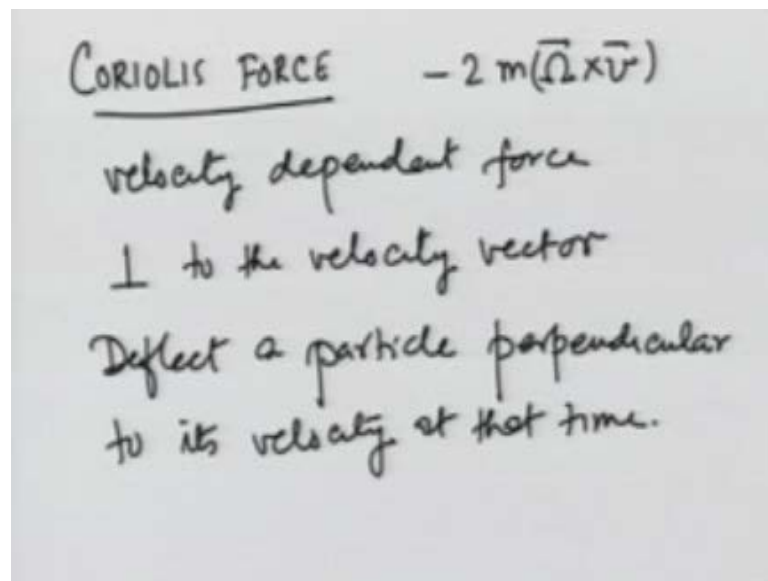 CORIOLIS FORCE - 2 m(Ω̄ × v̄)
velocity dependent force
⊥ to the velocity vector
Deflect a particle perpendicular
to its velocity at that time.